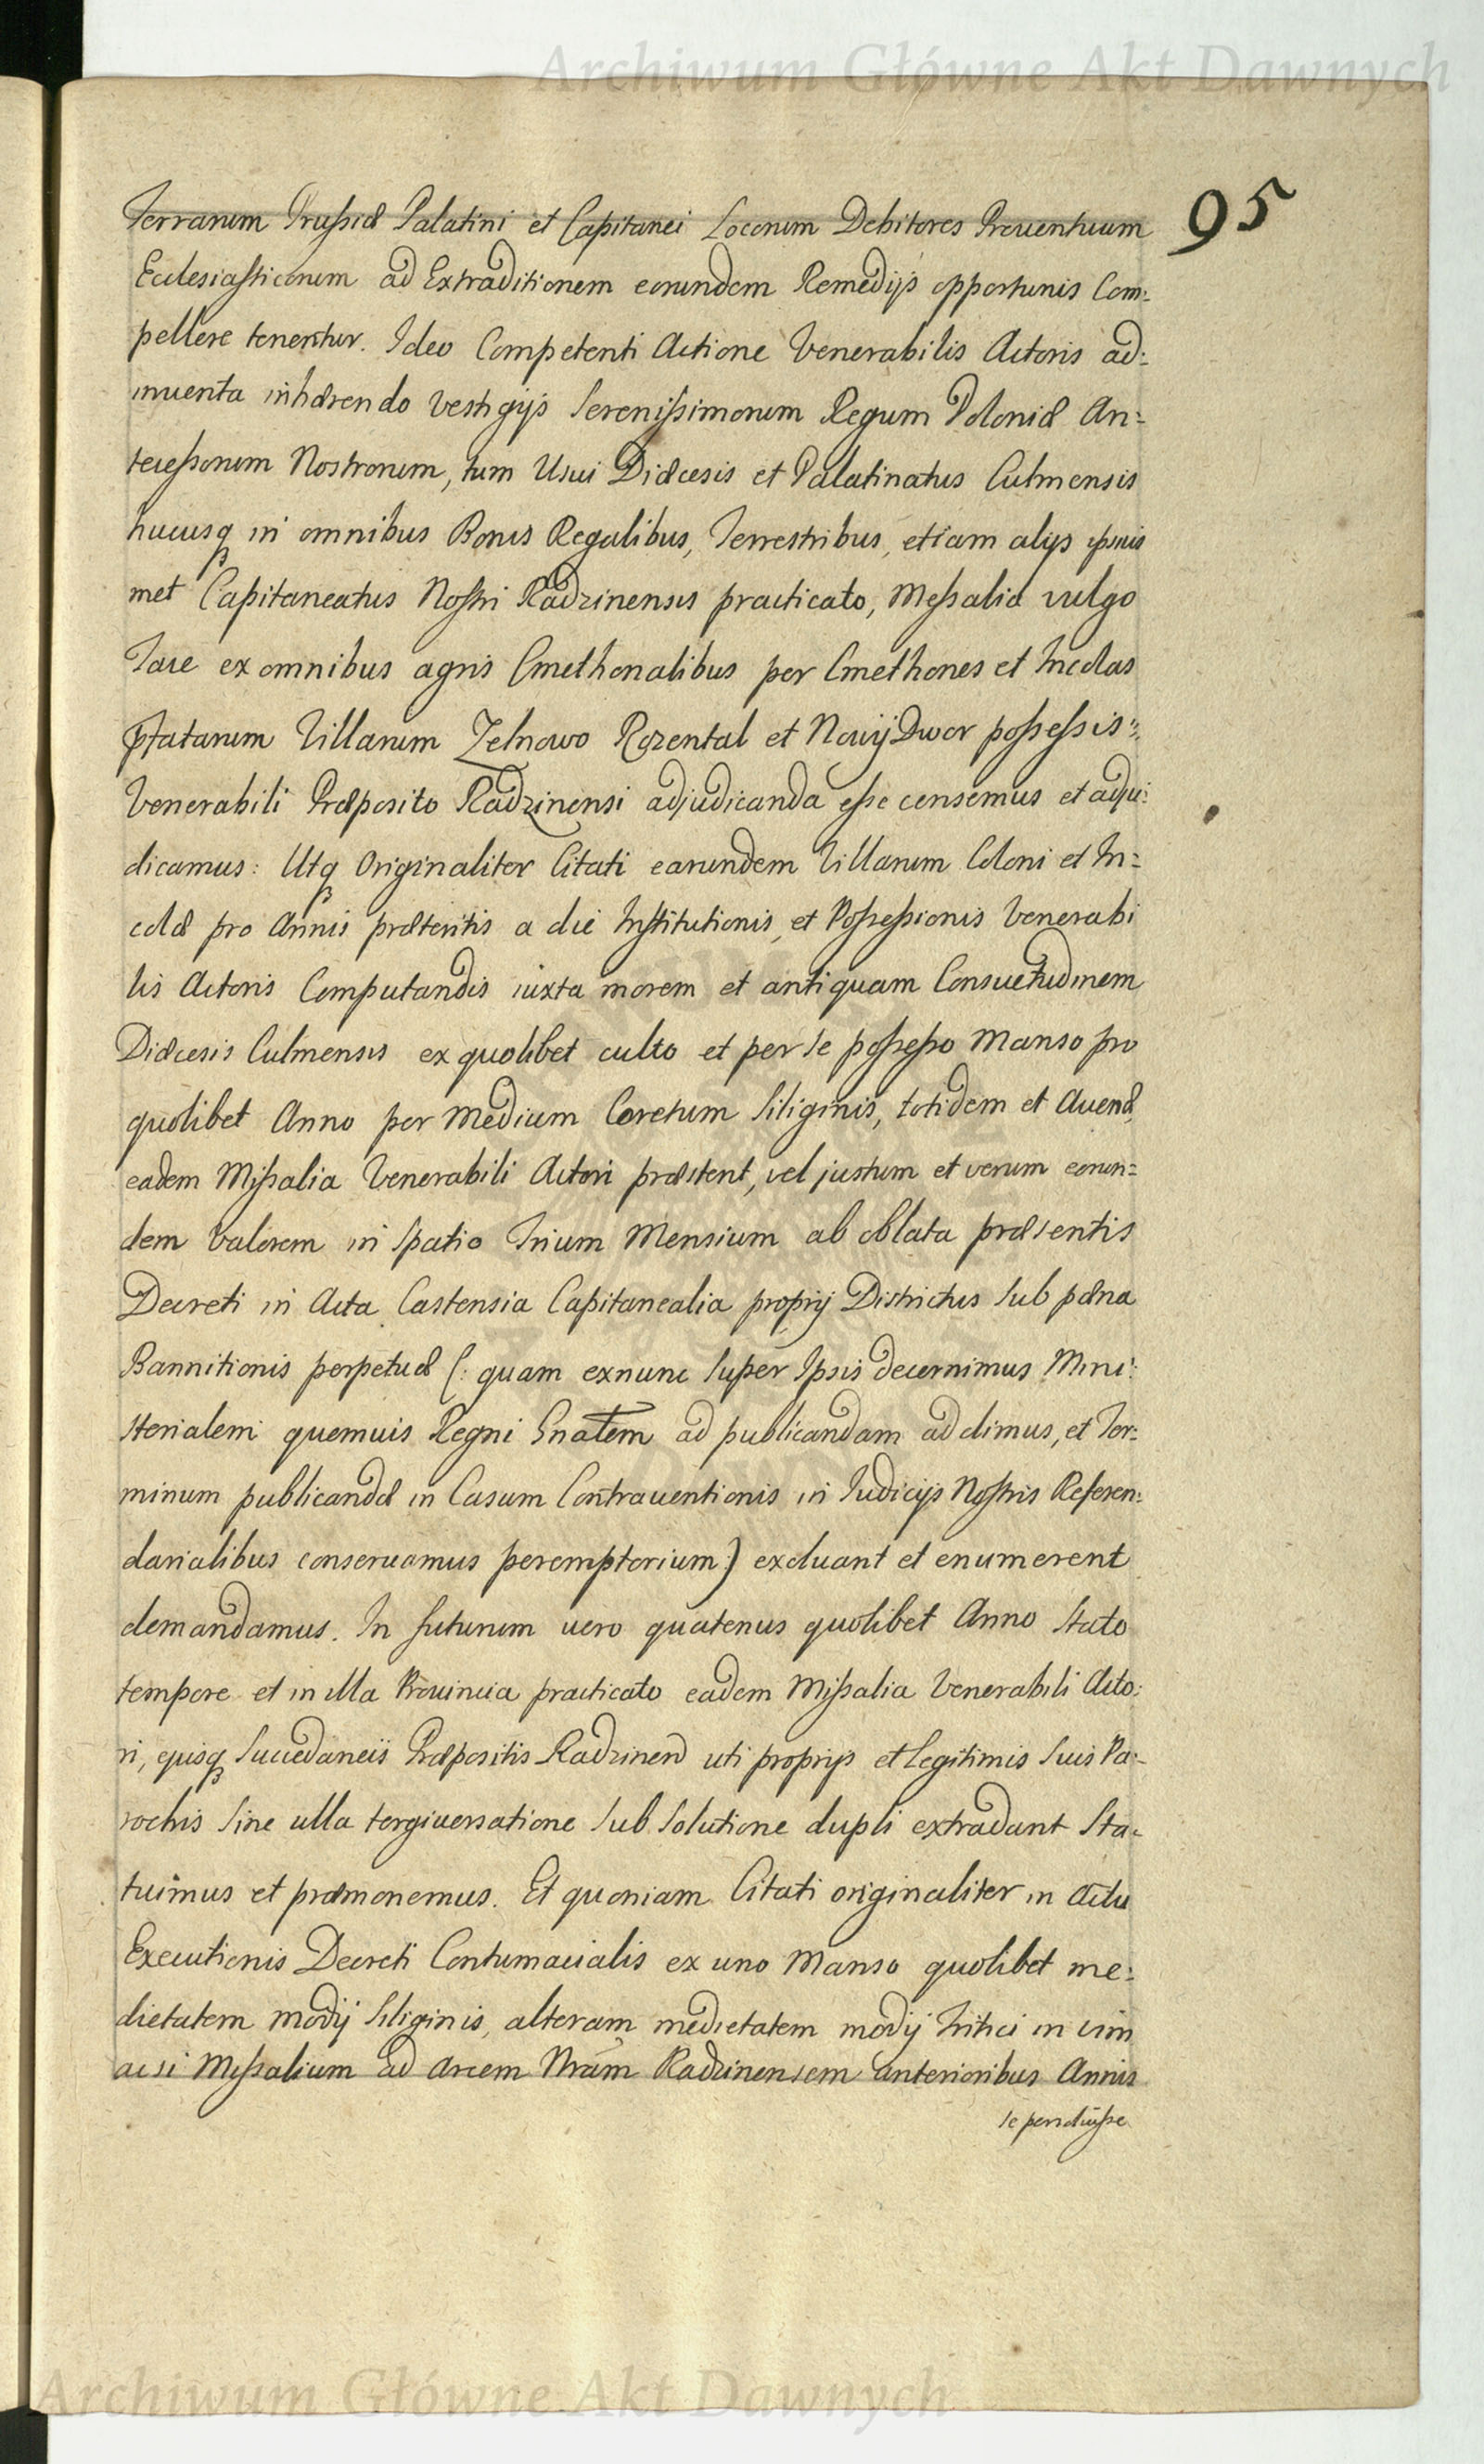 Archiwum Główne Akt Dawnych
95
Terrarum Prussiæ Palatini et Capitanei Locorum Debitores Proventuum
Ecclesiasticorum ad Extraditionem eorundem Remedijs opportunis Com:
pellere tenentur. Ideo Competenti Actione Venerabilis Actoris ad:
inuenta inhærendo vestigijs Serenissimorum Regum Poloniæ An:
tecessorum Nostrorum, tum Usui Diæcesis et Palatinatus Culmensis
hucusq in omnibus Bonis Regalibus, Terrestribus, etiam alijs ipsius
met Capitaneatus Nostri Radzinensis practicato, Messalia vulgo
Tace ex omnibus agris Cmethonalibus per Cmethones et Incolas
ptatarum Villarum Zelnowo Rozental et Nowy Dwor possessis
Venerabili Præposito Radzinensi adjudicanda esse censemus et adju:
dicamus: Utq Originaliter Citati earundem Villarum Coloni et In:
colæ pro Annis præteritis a die Institutionis, et Possessionis Venerabi
lis Actoris Computandis iuxta morem et antiquam Consuetudinem
Diæcesis Culmensis ex quolibet culto et per se possesso Manso pro
quolibet Anno per medium Coretum Siliginis, totidem et Avenæ,
eadem Missalia Venerabili Actori præstent, vel justum et verum eorun:
dem valorem in Spatio Trium Mensium ab oblata præsentis
Decreti in Acta Castensia Capitanealia proprij Districtus Sub pæna
Bannitionis perpetuæ (: quam exnunc Super Ipsis decernimus Mini:
sterialem quemuis Regni Gnalem ad publicandam addimus, et Ter:
minum publicandæ in Casum Contrauentionis in Iudicijs Nostris Referen:
darialibus conseruamus peremptorium:) excluant et enumerent
demandamus. In futurum uero quatenus quolibet Anno Stato
tempore et in illa Prouincia practicato eadem Missalia Venerabili Acto:
ri, ejusq Succedaneis Præpositis Radzinen uti proprijs et Legitimis Suis Pa:
rochis Sine ulla tergiuersatione Sub Solutione dupli extradant Sta:
tuimus et præmonemus. Et quoniam Citati originaliter in Actu
Executionis Decreti Contumacialis ex uno Manso quolibet me:
dietatem modij Siliginis, alteram medietatem modij Tritici in vim
acsi Missalium ad Arcem Nram Radzinensem anterioribus Annis
se pendisse
Archiwum Główne Akt Dawnych